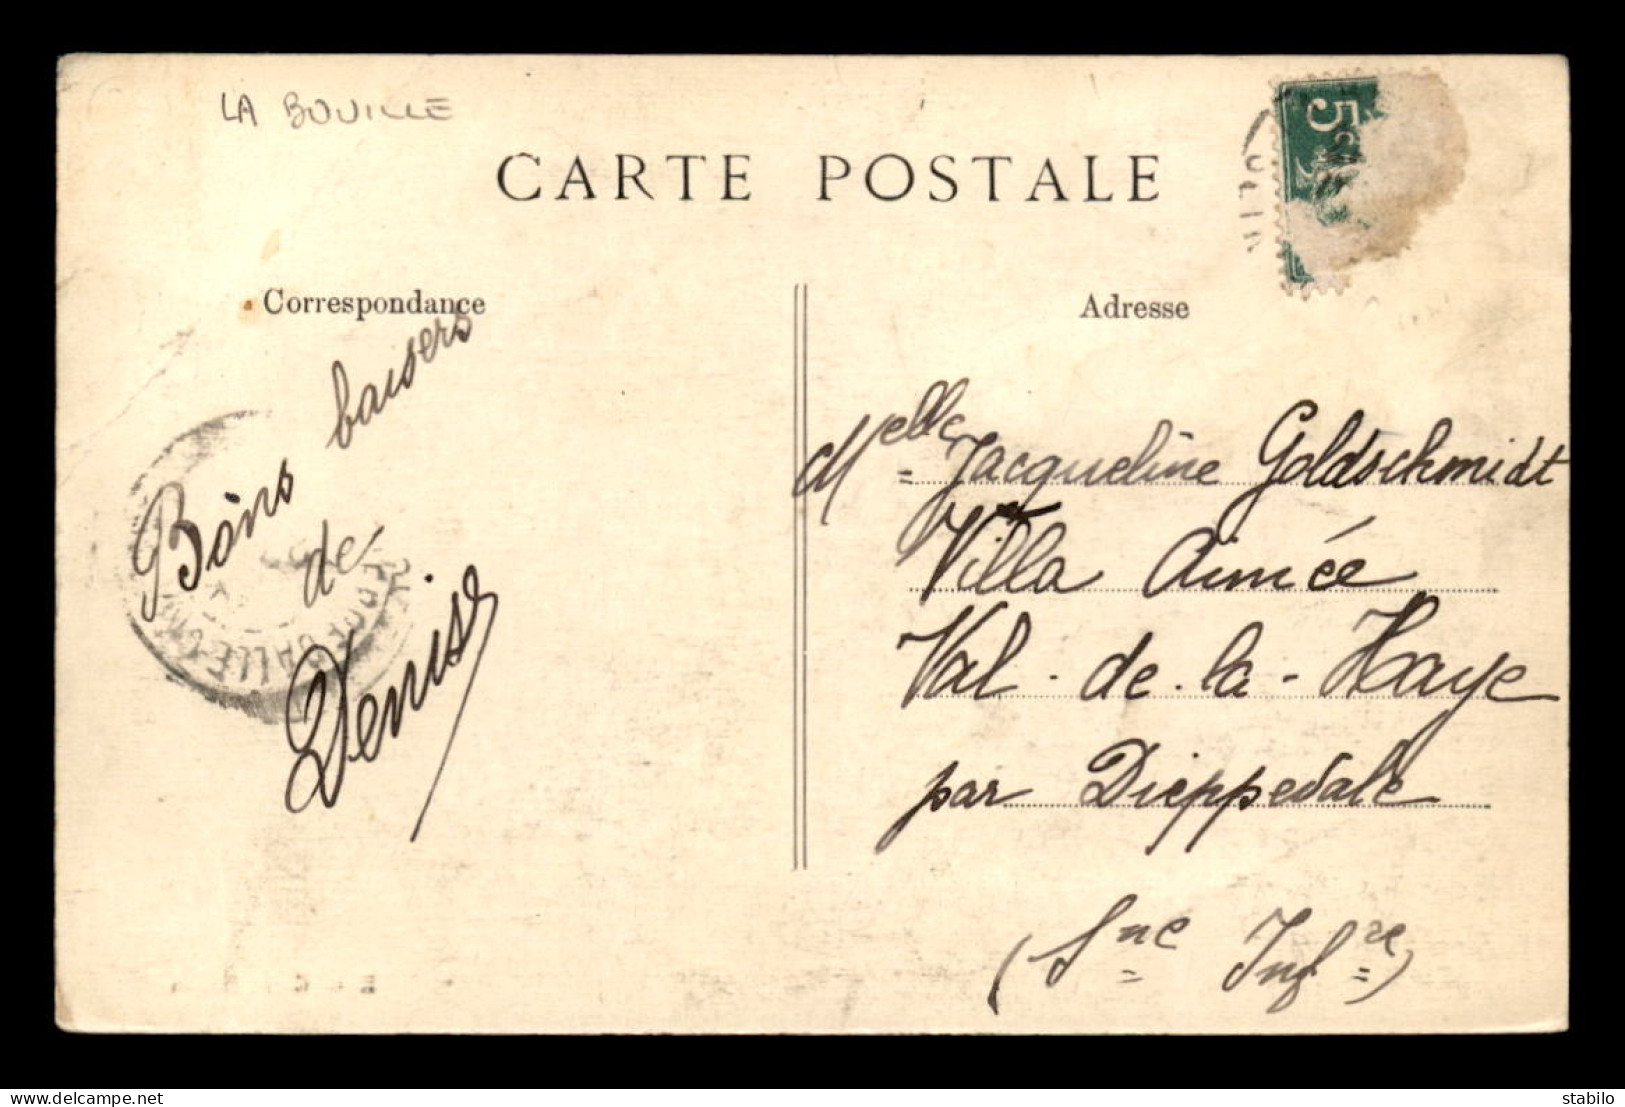 LA BOUILLE
CARTE POSTALE
5
Correspondance
Adresse
Bons baisers
de
Denise
Melle Jacqueline Goldschmidt
Villa Aimée
Val-de-la-Haye
par Dieppedale
(Sne Infre)
www.delcampe.net
stabilo